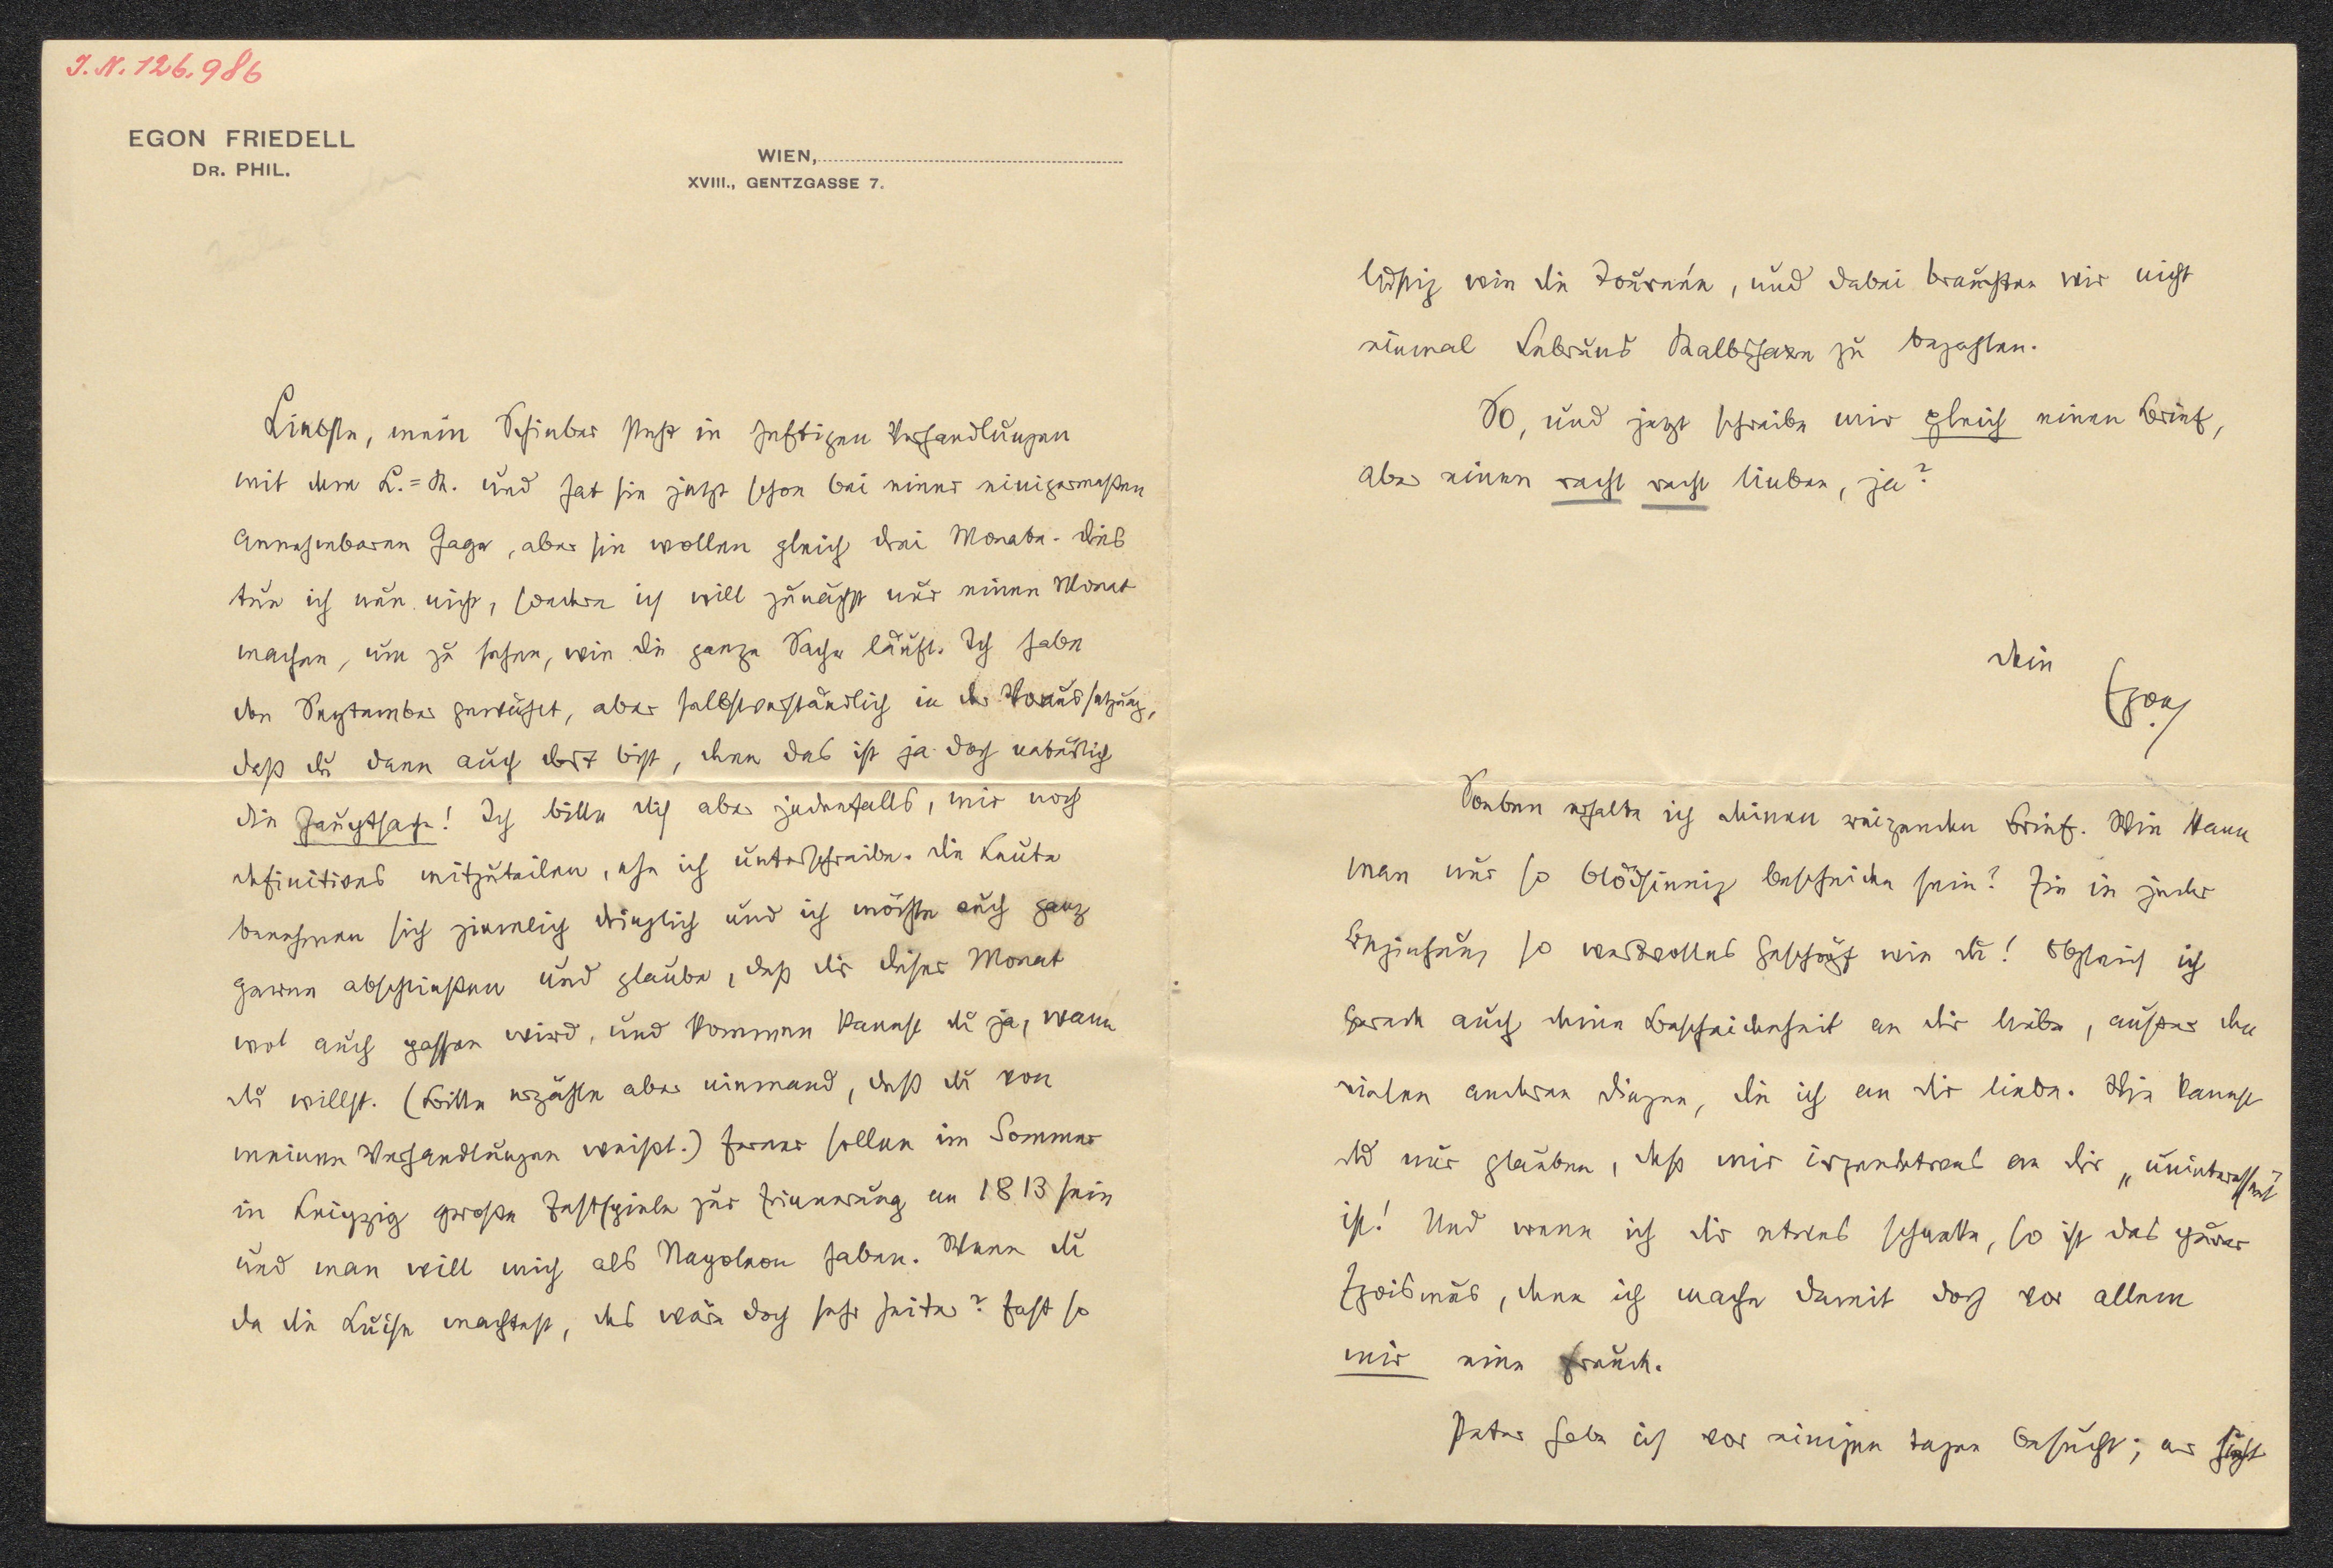 J. N. 126.986
EGON FRIEDELL
DR. PHIL.
WIEN,
XVIII., GENTZGASSE 7.
Liebste, mein Schieber steht in heftigen Verhandlungen
mit dem L.=K. und hat sie jetzt schon bei einer einigermaßen
annehmbaren Gage, aber sie wollen gleich drei Monate. Dies
tue ich nun nicht, sondern ich will zunächst nur einen Monat
machen, um zu sehen, wie die ganze Sache läuft. Ich habe
den September gewählt, aber selbstverständlich in der Voraussetzung,
daß du dann auch dort bist, denn das ist ja doch natürlich
die Hauptsache! Ich bitte dich aber jedenfalls, mir noch
definitives mitzuteilen, ehe ich unterschreibe. Die Leute
benehmen sich ziemlich dringlich und ich möchte auch ganz
gerne abschließen und glaube, daß dir dieser Monat
wol auch passen wird, und kommen kannst du ja, wann
du willst. (Bitte erzähle aber niemand, daß du von
meinen Verhandlungen weißt.) Ferner sollen im Sommer
in Leipzig große Festspiele zur Erinnerung an 1813 sein
und man will mich als Napoleon haben. Wenn du
da die Luise machtest, das wäre doch sehr heiter? Fast so
lustig wie die Tournée, und dabei brauchten wir nicht
einmal Lebruns Kalbshaxe zu bezahlen.
So, und jetzt schreibe mir gleich einen Brief,
aber einen recht recht lieben, ja?
Dein
Egon
Soeben erhalte ich deinen reizenden Brief. Wie kann
man nur so blödsinnig bescheiden sein? Ein in jeder
Beziehung so wertvolles Geschöpf wie du! Obgleich ich
gerade auch deine Bescheidenheit an dir liebe, außer den
vielen anderen Dingen, die ich an dir liebe. Wie kannst
du nur glauben, daß mir irgendetwas an dir „uninteressant"
ist! Und wenn ich dir etwas schenke, so ist das purer
Egoismus, denn ich mache damit doch vor allem
mir eine Freude.
Peter habe ich vor einigen Tagen besucht; er sieht